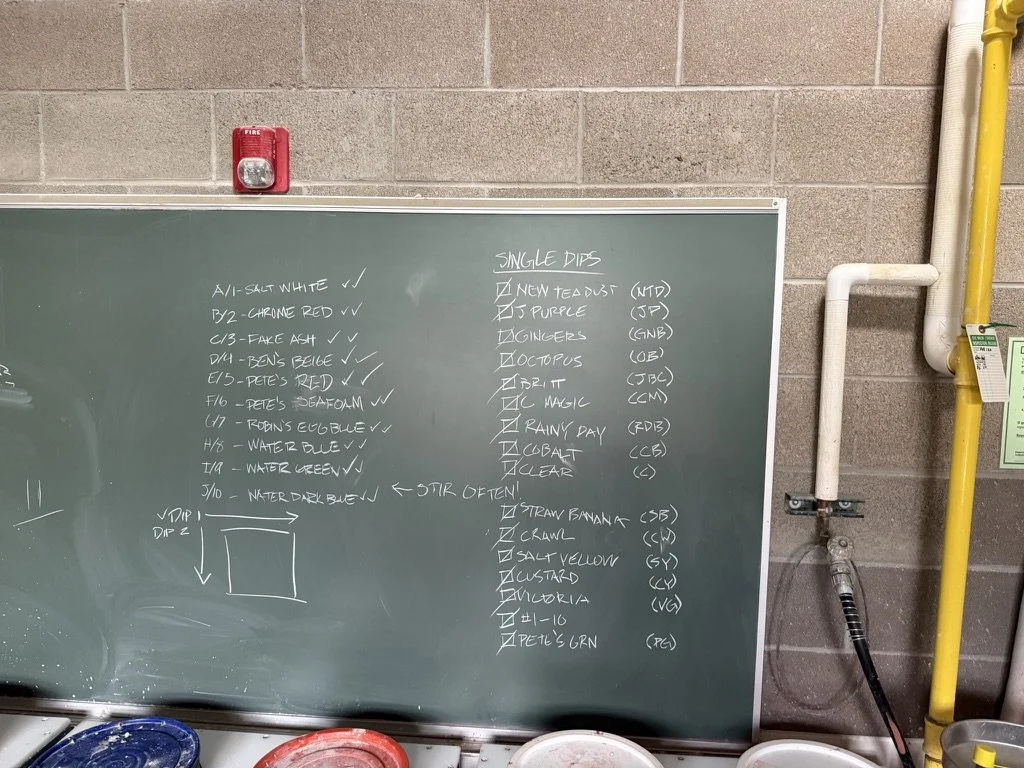 FIRE
A/1-SALT WHITE ✓✓
B/2-CHROME RED ✓✓
C/3-FAKE ASH ✓✓
D/4-BEN'S BEIGE ✓✓
E/5-PETE'S RED ✓✓
F/6-PETE'S SEAFOAM ✓✓
G/7-ROBIN'S EGG BLUE ✓✓
H/8-WATER BLUE ✓✓
I/9-WATER GREEN ✓✓
J/10-WATER DARK BLUE ✓✓ ← STIR OFTEN!
✓DIP 1
DIP 2
11
SINGLE DIPS
☑ NEW TEADUST (NTD)
☑ J PURPLE (JP)
☑ GINGERS (GNB)
☑ OCTOPUS (OB)
☑ BRITT (JBC)
☑ C MAGIC (CM)
☑ RAINY DAY (RDB)
☑ COBALT (CB)
☑ CLEAR (C)
☑ STRAW BANANA (SB)
☑ CRAWL (CW)
☑ SALT YELLOW (SY)
☑ CUSTARD (CY)
☑ VICTORIA (VG)
☑ #1-10
☑ PETE'S GRN (PG)